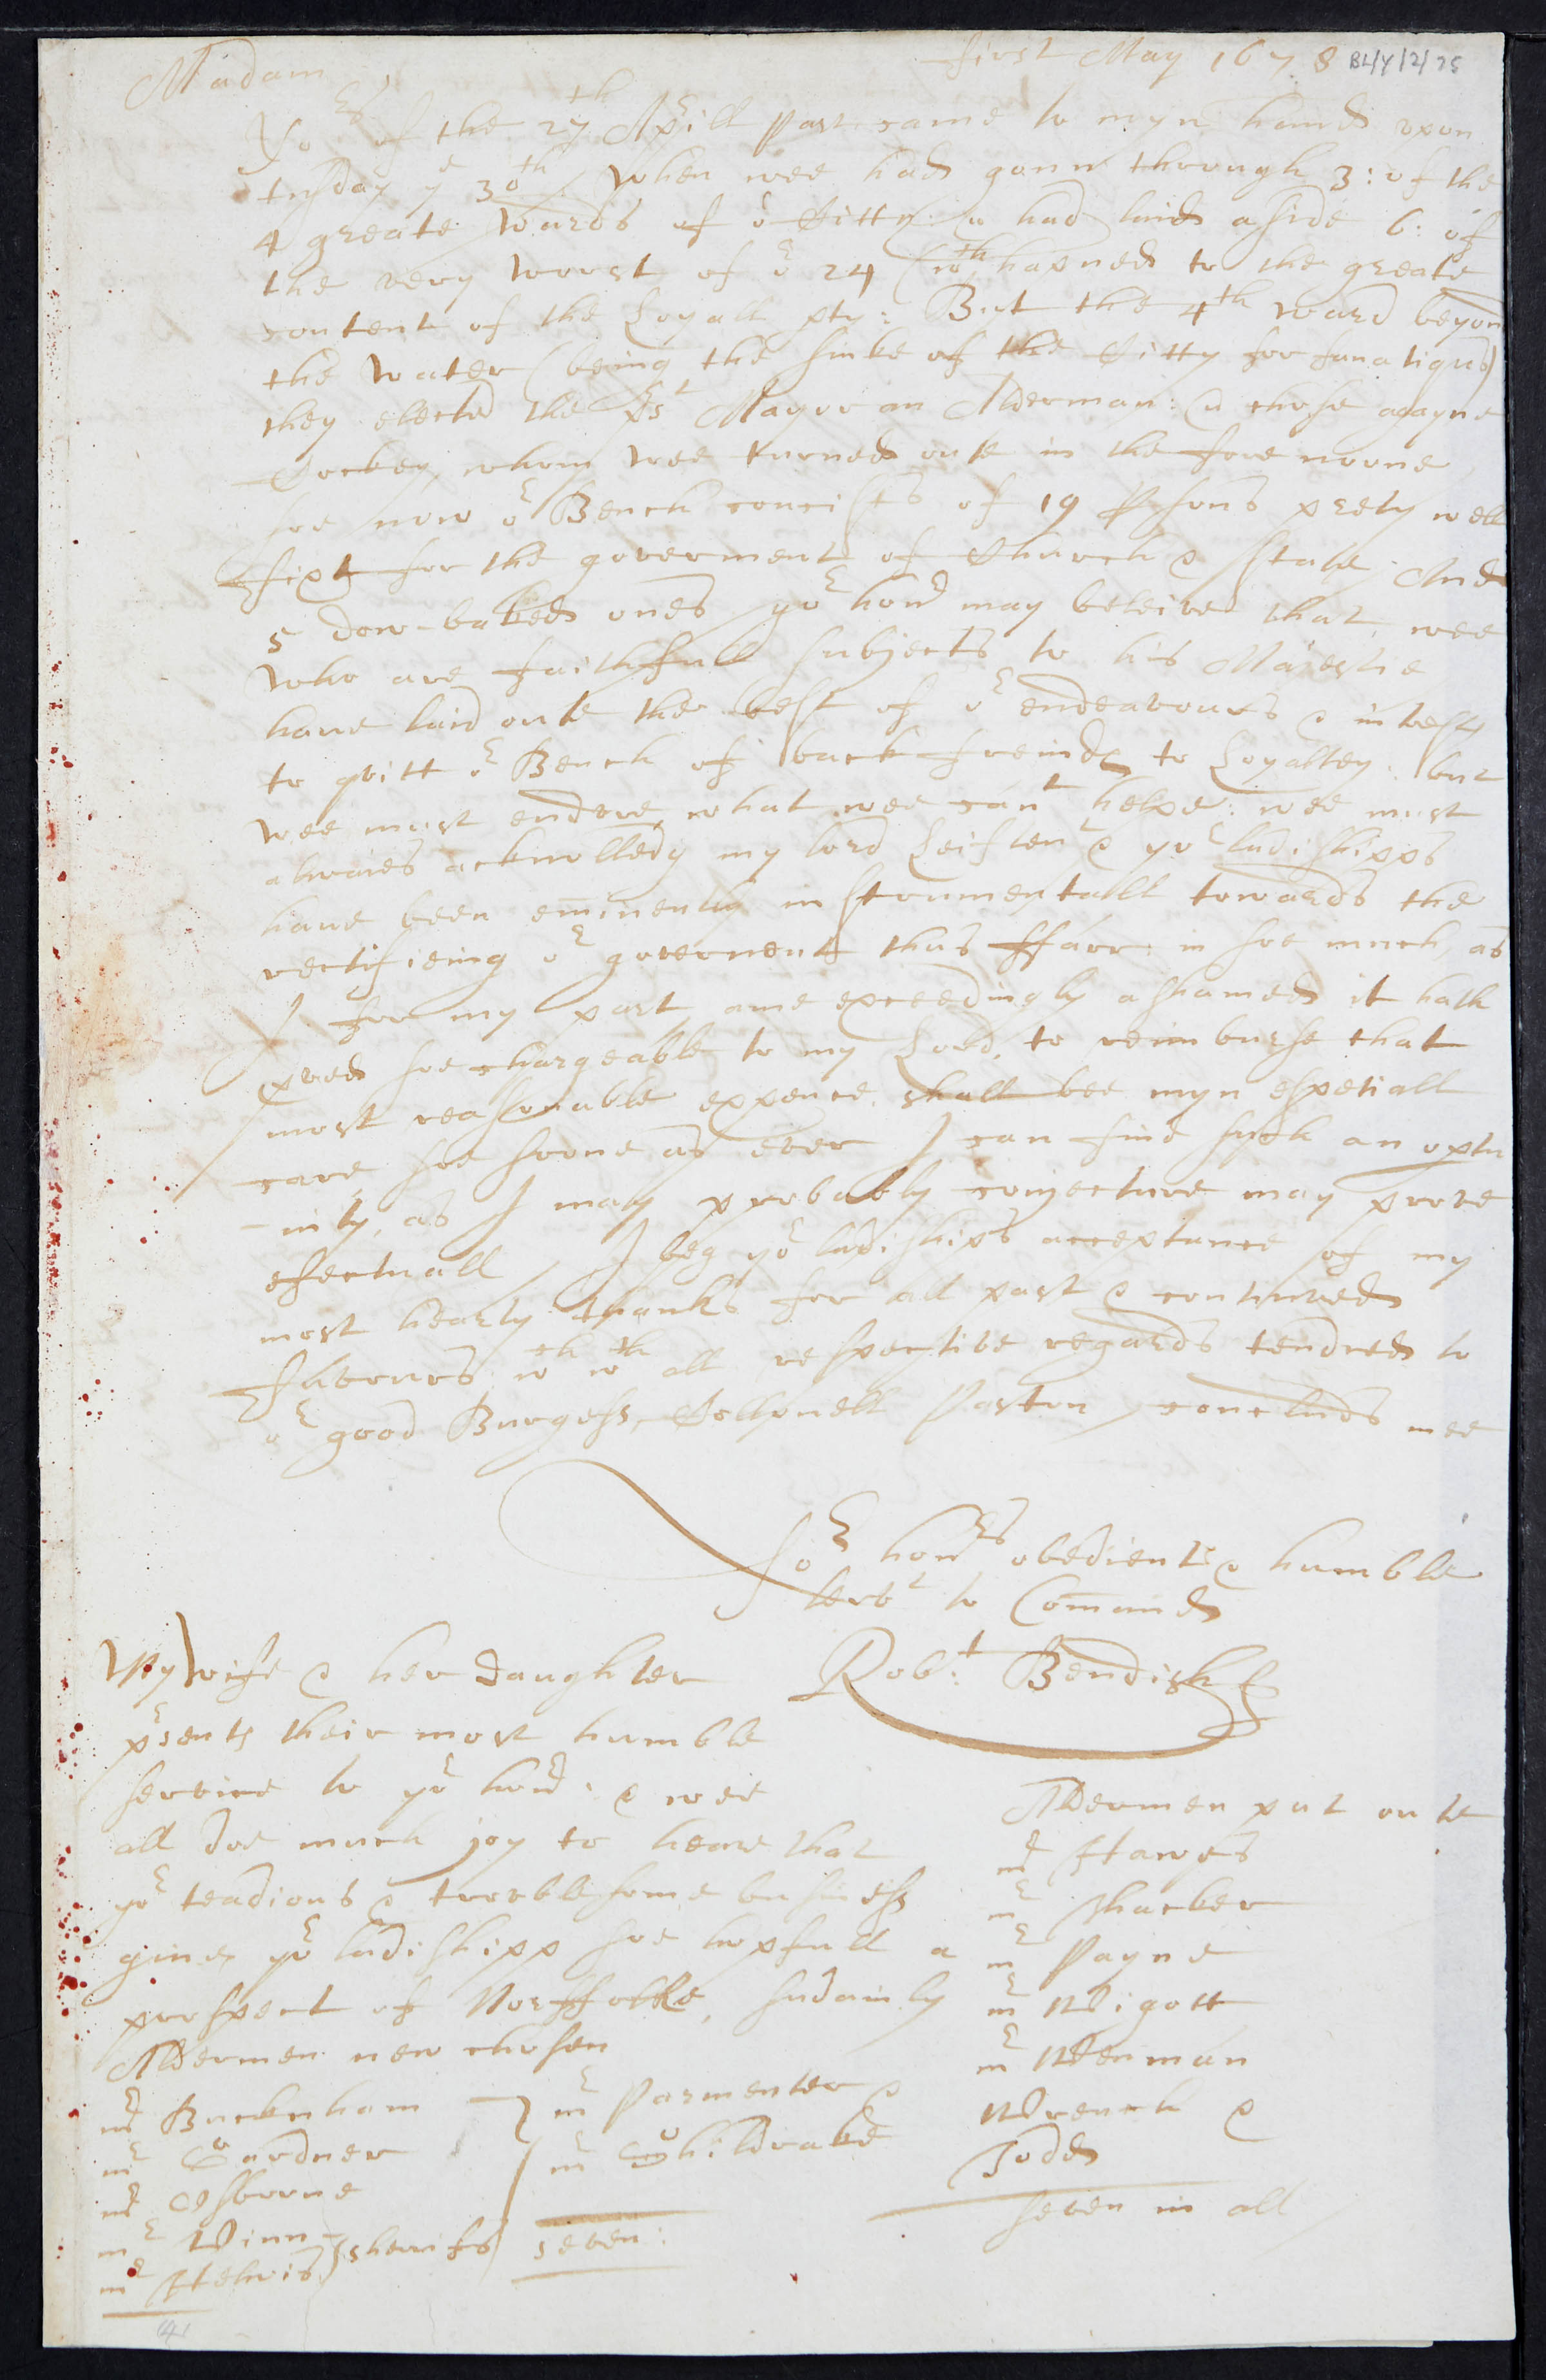 first May 1678 BL/Y/2/75
Madam
Yors of the 27th Aprill past came to myn hands upon
tusday ye 30th / When wee had gonn through 3: of the
4 greate Wards of or Citty & had laid aside 6: of
the very worst of or 24 (wch hapned to the greate
content of the Loyall pty: But the 4th Ward beyon
the water (being the sinke of the Citty for fanatiqus)
they elected the prst Mayor an Alderman: & chose agayne
whom wee turned oute in the fore noone
soe now or Bench concists of 19 Psons prety well
fixt for the goverment of Church & State. And
5 dow-baked ones / yor honr may beleive that wee
who are faithfull subjects to his Majestie
have laid oute the best of or endeavours & intrest
to qvitt or Bench of back freinds to Loyalltey. but
wee must endure what wee cant helpe: wee must
alwaies acknolledg my lord Leiften't & yor ladishipps
have been eminently instrumentall towards the
rectifieing or goverment thus ffarr: in soe much as
I for my part ame exceedingly ashamed it hath
pved soe chargeable to my Lord, to reimburse that
most reasonable expence shall bee myn espetiall
care soe soone as ever I can find such an optu
-nity, as I may probably conjecture may prove
efectuall / I beg yor ladiships acceptance of my
most hearty thanks for all past & continued
favours wch wth all respective regards tendred to
or good Burgess, Collonell Paston / concluds mee
Yor honrs obedient & humble
servt to Command
Robt: Bendish
My wife & her daughter
prsents their most humble
service to yor honr: & wee
all doe much joy to heare that
yor teadious & trooblesome business
gives yor ladishipp soe hopfull a
prospect of Norffolke, sudainly
Aldermen new chosen
mr Buckenham
mr Gardner
mr Osborne
mr Winn
mr Helwis } sherrifs
mr Parmenter &
mr Whildrake
seven:
Aldermen put oute
mr Hawes
mr Thacker
mr Payne
mr Wigott
mr Wenman
Wrench &
Todd
seven in all